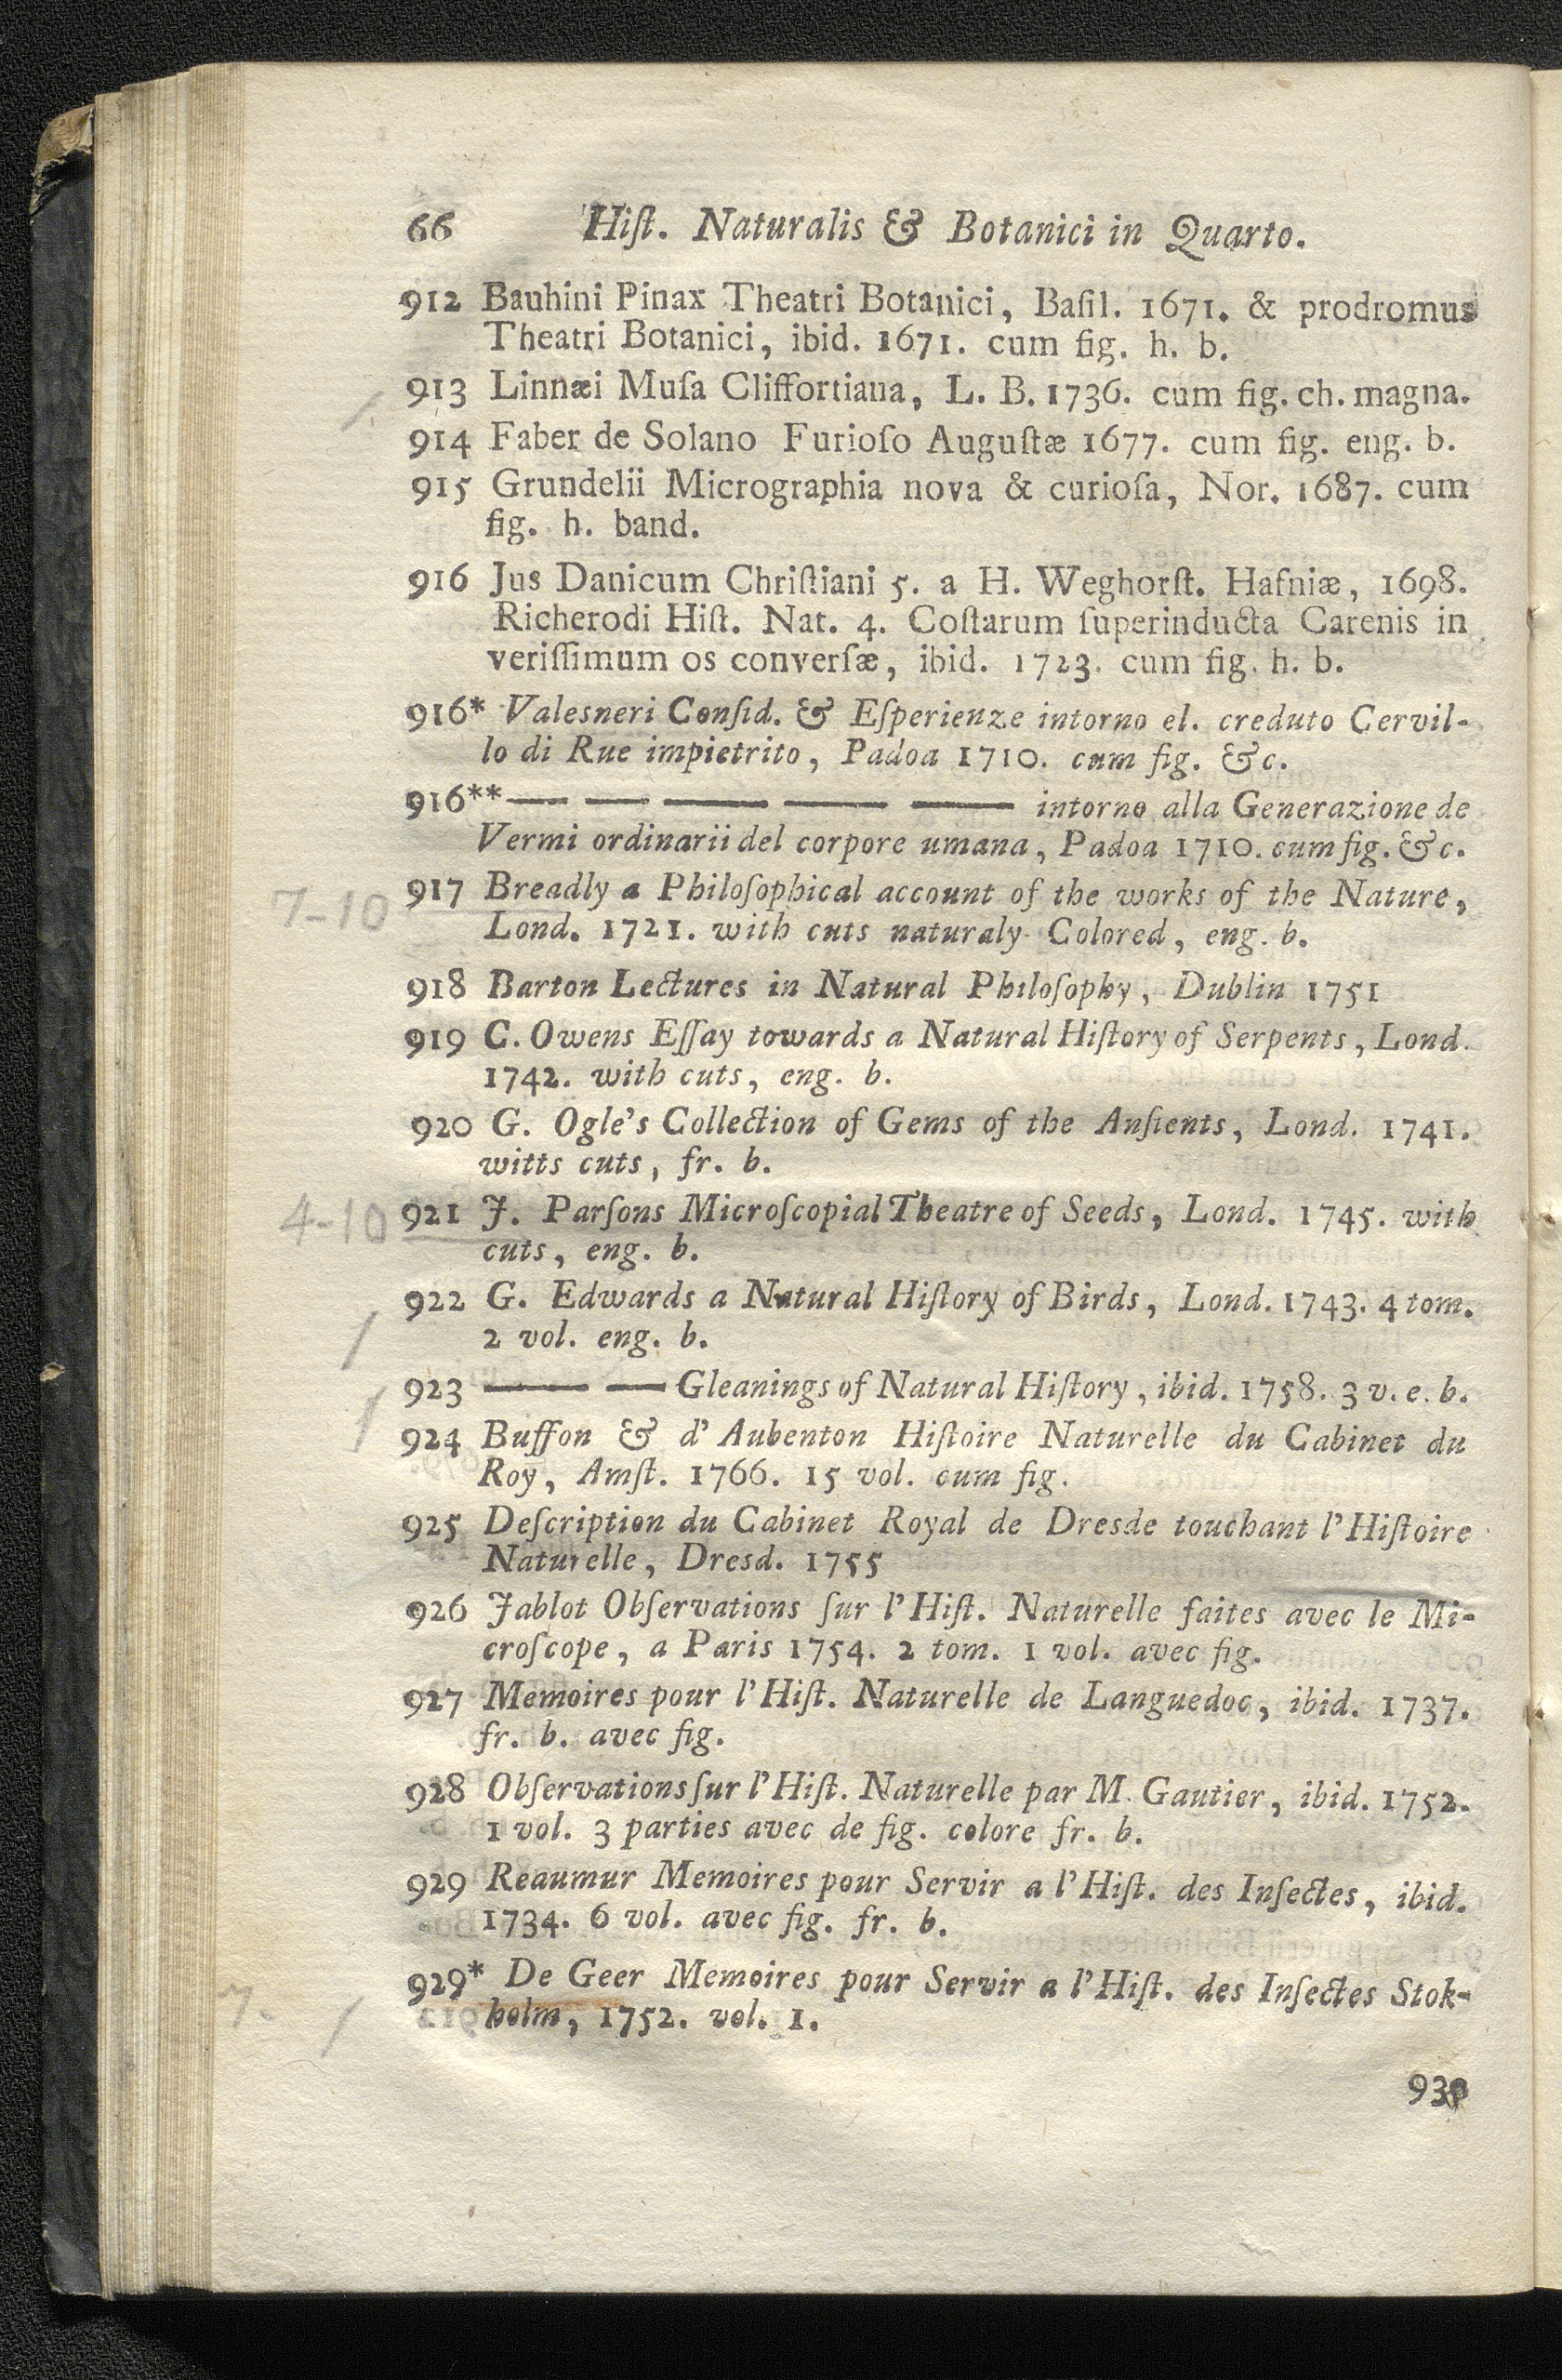 66 Hiſt. Naturalis & Botanici in Quarto.
912 Bauhini Pinax Theatri Botanici, Baſil. 1671. & prodromus
Theatri Botanici, ibid. 1671. cum fig. h. b.
913 Linnæi Muſa Cliffortiana, L. B. 1736. cum fig. ch. magna.
914 Faber de Solano Furioſo Auguſtæ 1677. cum fig. eng. b.
915 Grundelii Micrographia nova & curioſa, Nor. 1687. cum
fig. h. band.
916 Jus Danicum Chriſtiani 5. a H. Weghorſt. Hafniæ, 1698.
Richerodi Hiſt. Nat. 4. Coſtarum ſuperinducta Carenis in
veriſſimum os converſæ, ibid. 1723. cum fig. h. b.
916* Valesneri Conſid. & Eſperienze intorno el. creduto Cervil-
lo di Rue impietrito, Padoa 1710. cum fig. &c.
916** — — — — — intorno alla Generazione de
Vermi ordinarii del corpore umana, Padoa 1710. cum fig. &c.
7-10 917 Breadly a Philoſophical account of the works of the Nature,
Lond. 1721. with cuts naturaly Colored, eng. b.
918 Barton Lectures in Natural Philoſophy, Dublin 1751
919 C. Owens Eſſay towards a Natural Hiſtory of Serpents, Lond.
1742. with cuts, eng. b.
920 G. Ogle's Collection of Gems of the Anſients, Lond. 1741.
witts cuts, fr. b.
4-10 921 J. Parſons Microſcopial Theatre of Seeds, Lond. 1745. with
cuts, eng. b.
922 G. Edwards a Natural Hiſtory of Birds, Lond. 1743. 4 tom.
2 vol. eng. b.
923 — — Gleanings of Natural Hiſtory, ibid. 1758. 3 v. e. b.
924 Buffon & d' Aubenton Hiſtoire Naturelle du Cabinet du
Roy, Amſt. 1766. 15 vol. cum fig.
925 Deſcription du Cabinet Royal de Dresde touchant l'Hiſtoire
Naturelle, Dresd. 1755
926 Jablot Obſervations ſur l'Hiſt. Naturelle faites avec le Mi-
croſcope, a Paris 1754. 2 tom. 1 vol. avec fig.
927 Memoires pour l'Hiſt. Naturelle de Languedoc, ibid. 1737.
fr. b. avec fig.
928 Obſervations ſur l'Hiſt. Naturelle par M. Gautier, ibid. 1752.
1 vol. 3 parties avec de fig. colore fr. b.
929 Reaumur Memoires pour Servir a l'Hiſt. des Inſectes, ibid.
1734. 6 vol. avec fig. fr. b.
929* De Geer Memoires pour Servir a l'Hiſt. des Inſectes Stok-
7- holm, 1752. vol. 1.
930